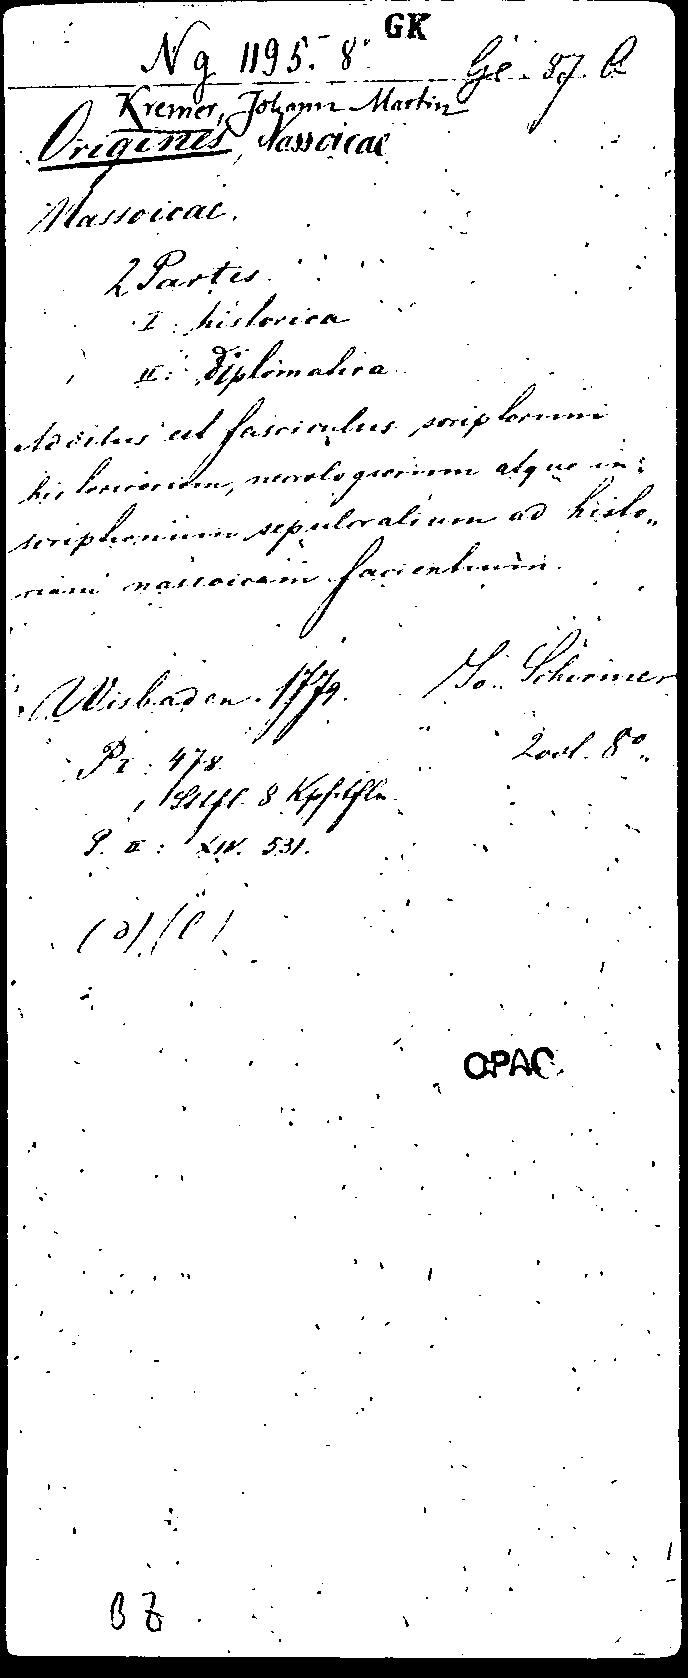 GK
Ng 1195. 8° Ge. 87. C
Kremer, Johann Martin
Origines, Nassoicae
Nassoicae.
2 Partes.
I: historica
II: diplomatica
Additus est fasciculus scriptorum
historicorum, necrologiorum atque in-
scriptionum sepulcralium ad histo-
riam nassoicam facientium.
Wisbaden. 1779. Io. Schirmer
P I: 478. 2 vol. 8°.
8 Kpfrtfln.
P. II: XIV. 531.
OPAC
BZ